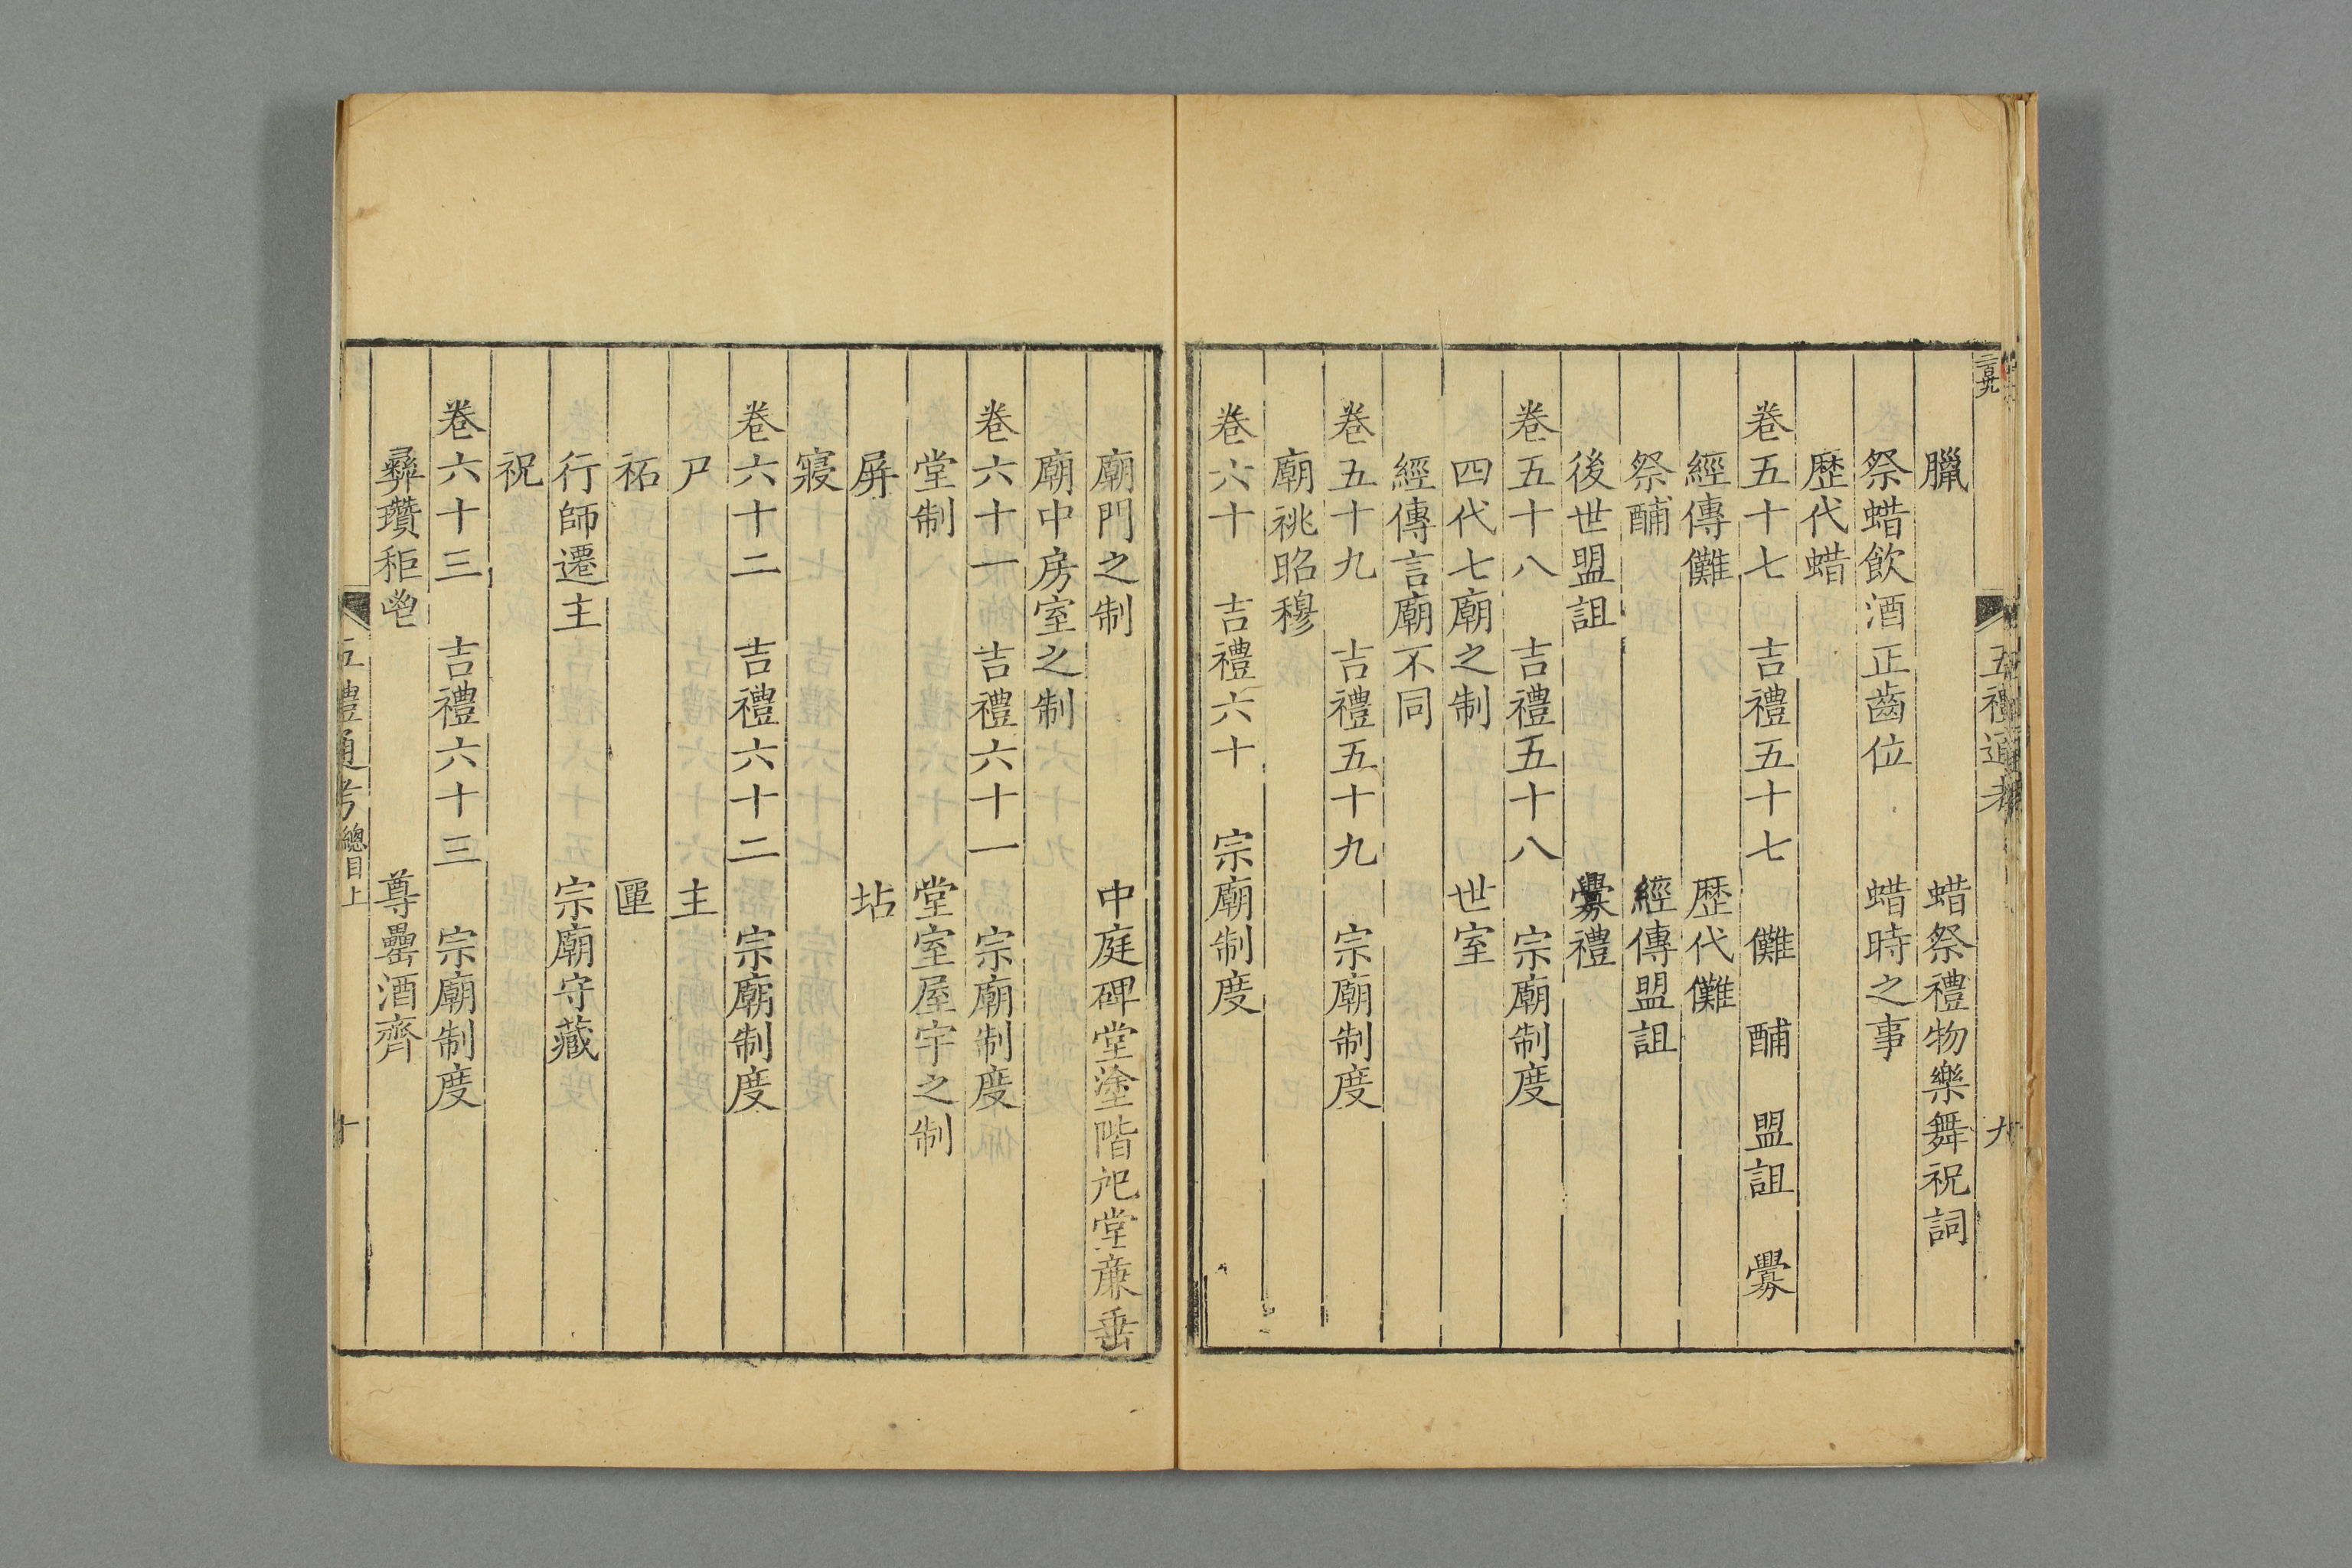 五禮通考 九
臘 蜡祭禮物樂舞祝詞
祭蜡飲酒正齒位 蜡時之事
歷代蜡
卷五十七 吉禮五十七 儺 酺 盟詛 釁
經傳儺 歷代儺
祭酺 經傳盟詛
後世盟詛 釁禮
卷五十八 吉禮五十八 宗廟制度
四代七廟之制 世室
經傳言廟不同
卷五十九 吉禮五十九 宗廟制度
廟祧昭穆
卷六十 吉禮六十 宗廟制度
廟門之制 中庭碑堂塗階戺堂廉垂
廟中房室之制
卷六十一 吉禮六十一 宗廟制度
堂制 堂室屋宇之制
屏 坫
寢
卷六十二 吉禮六十二 宗廟制度
尸 主
祏 匰
行師遷主 宗廟守藏
祝
卷六十三 吉禮六十三 宗廟制度
彝瓚秬鬯 尊罍酒齊
五禮通考 總目上 十